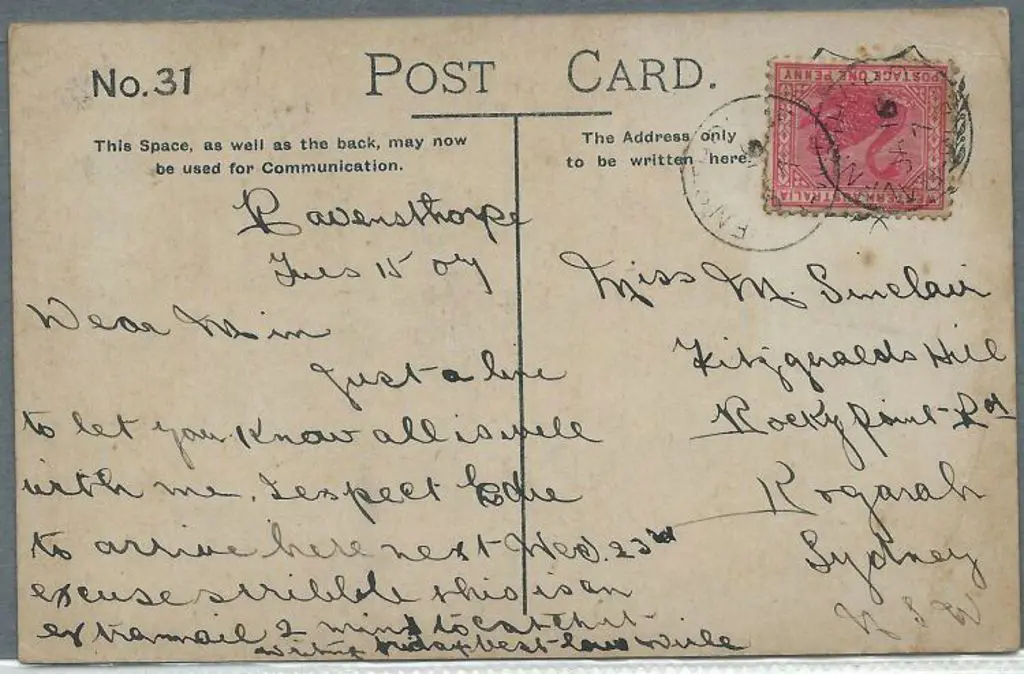 No. 31
POST CARD.
This Space, as well as the back, may now
be used for Communication.
The Address only
to be written here.
POSTAGE ONE PENNY
WESTERN AUSTRALIA
Ravensthorpe
Tues 15 07
Dear Mim
Just a line
to let you know all is well
with me. I expect Edie
to arrive here next Wed. 23rd
excuse scribble this is an
extra mail 2 mins to catch it
best love Will
Miss M. Sinclair
Fitzgeralds Hill
Rocky Point Rd
Kogarah
Sydney
N S W